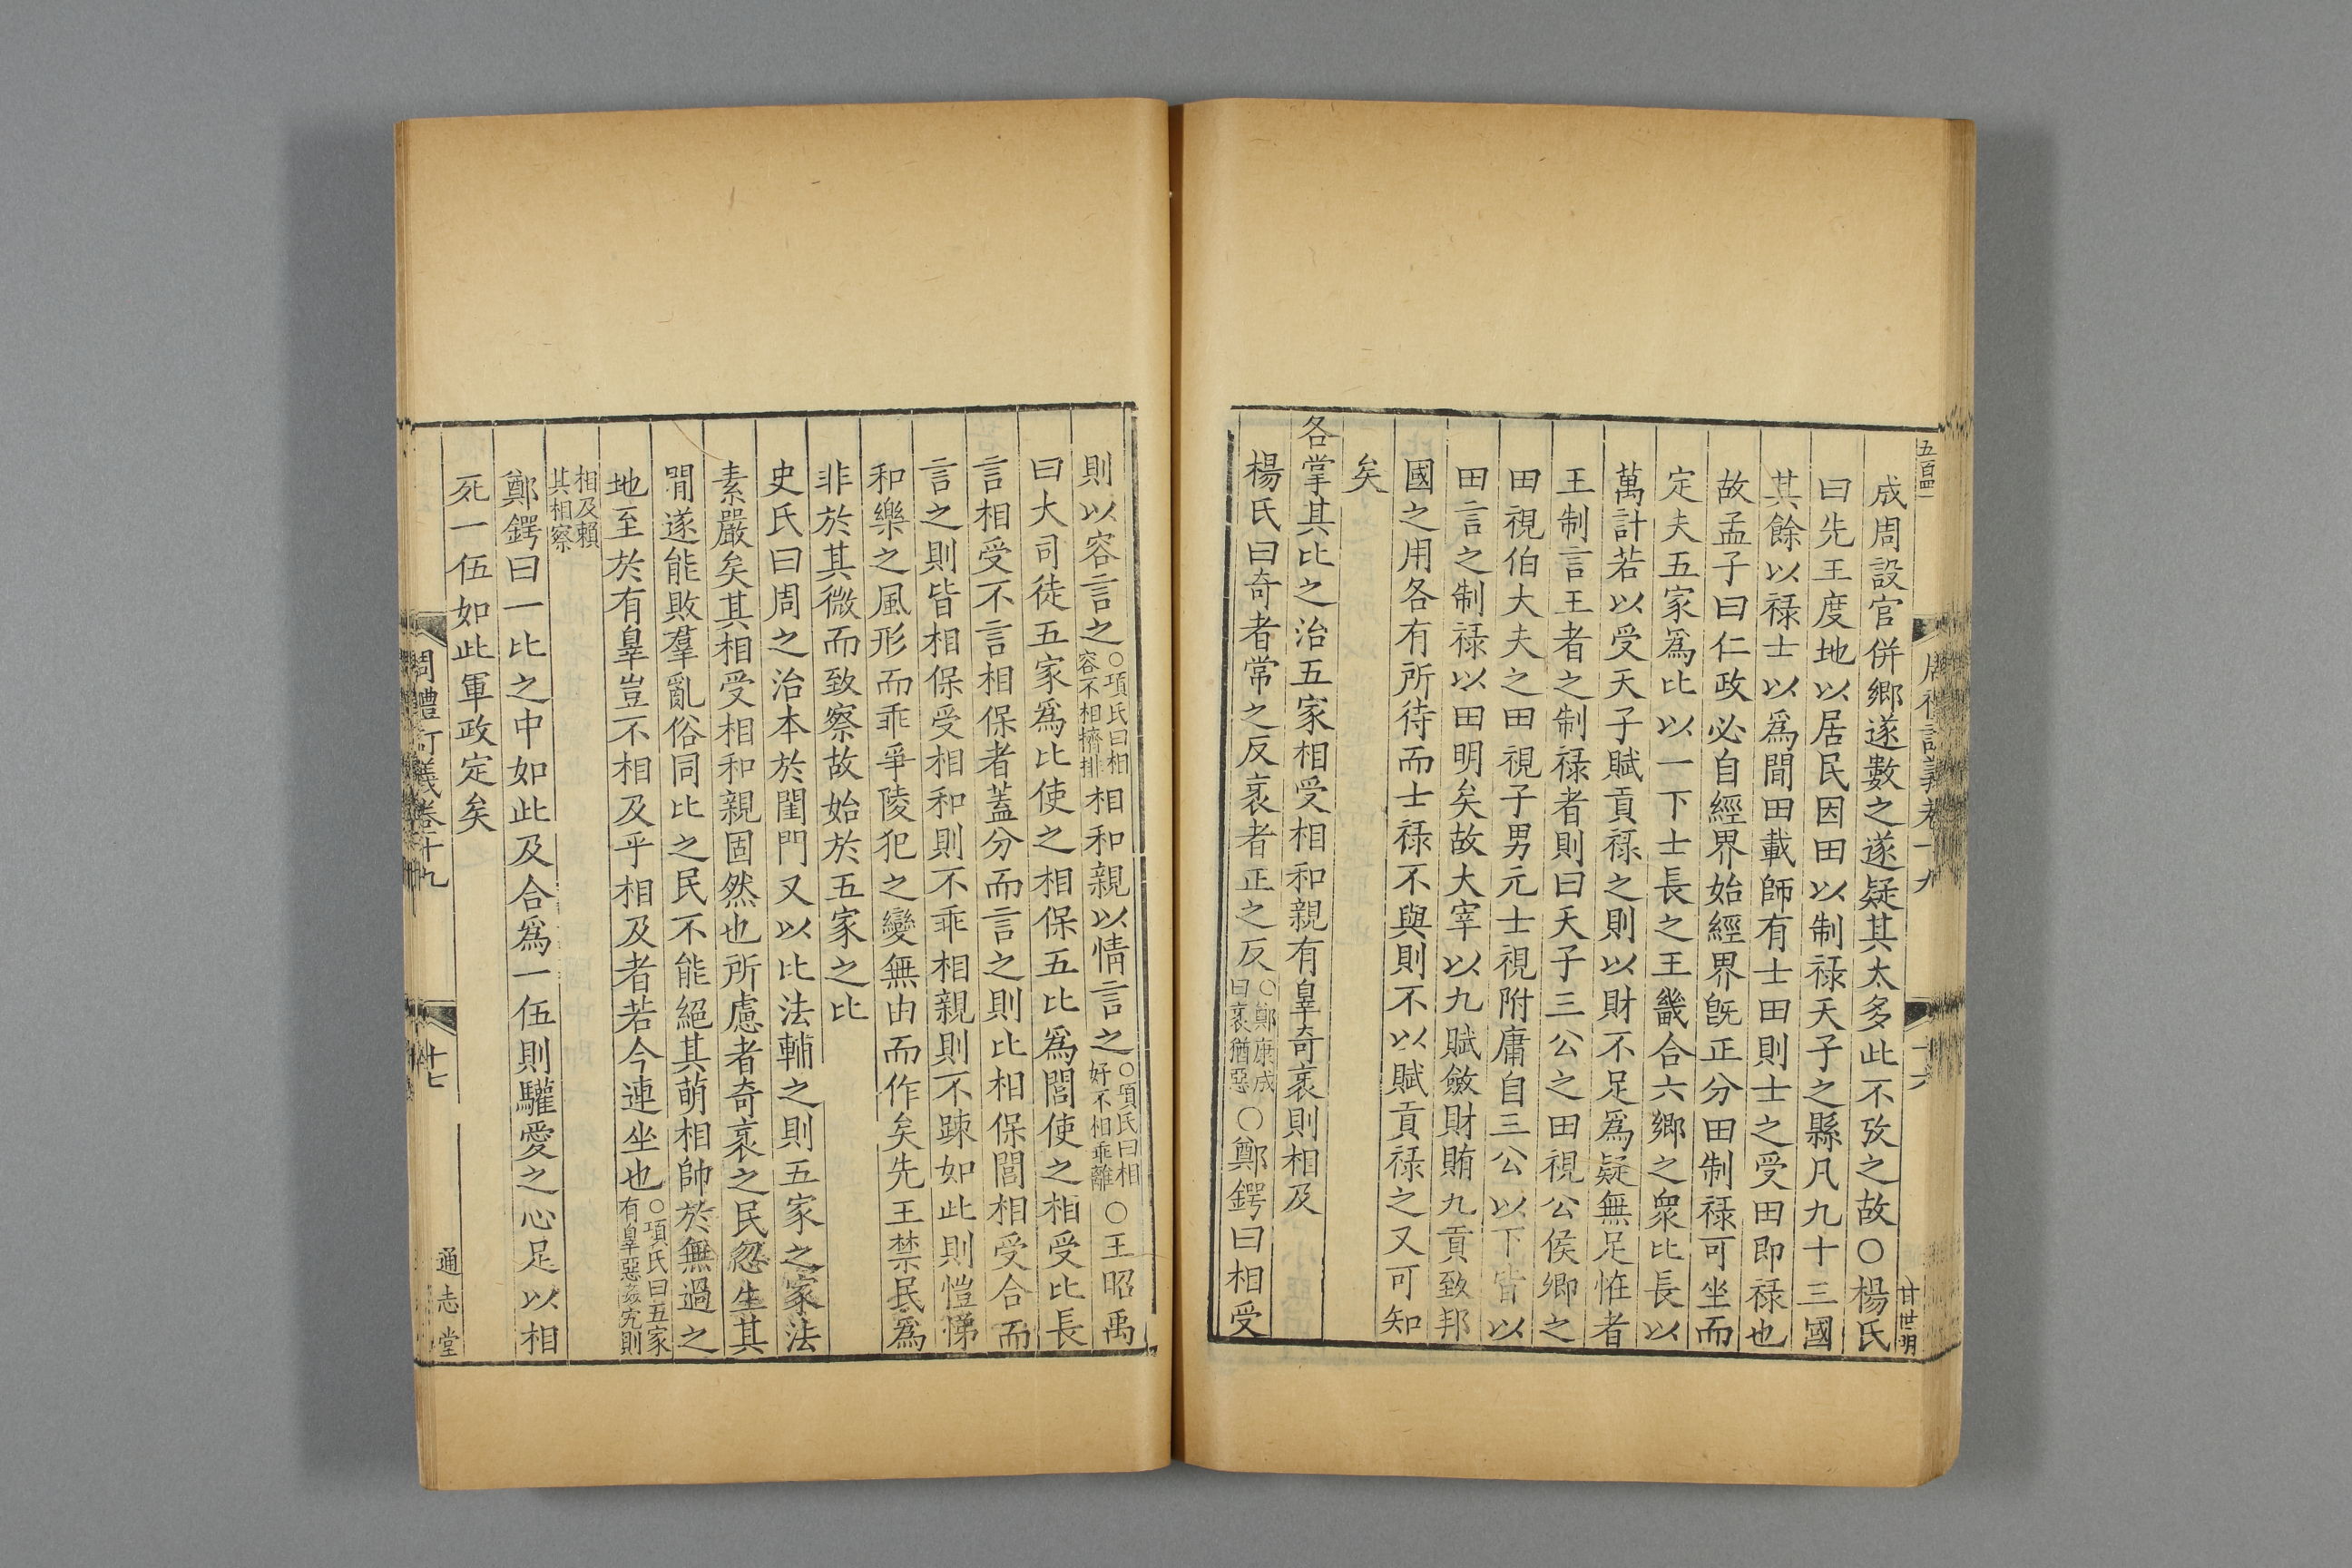 五百四
周禮訂義卷十九
十六
甘世明
成周設官併鄉遂數之遂疑其太多此不攷之故○楊氏
曰先王度地以居民因田以制禄天子之縣凡九十三國
其餘以禄士以爲間田載師有士田則士之受田即禄也
故孟子曰仁政必自經界始經界旣正分田制禄可坐而
定夫五家爲比以一下士長之王畿合六鄉之衆比長以
萬計若以受天子賦貢禄之則以財不足爲疑無足怪者
王制言王者之制禄者則曰天子三公之田視公侯卿之
田視伯大夫之田視子男元士視附庸自三公以下皆以
田言之制禄以田明矣故大宰以九賦斂財賄九貢致邦
國之用各有所待而士禄不與則不以賦貢禄之又可知
矣
各掌其比之治五家相受相和親有辠奇衺則相及
楊氏曰奇者常之反衺者正之反○鄭康成曰衺猶惡○鄭鍔曰相受
則以容言之○項氏曰相容不相擠排相和親以情言之○項氏曰相好不相乖離○王昭禹
曰大司徒五家爲比使之相保五比爲閭使之相受比長
言相受不言相保者蓋分而言之則比相保閭相受合而
言之則皆相保受相和則不乖相親則不踈如此則愷悌
和樂之風形而乖爭陵犯之變無由而作矣先王禁民爲
非於其微而致察故始於五家之比
史氏曰周之治本於閨門又以比法輔之則五家之家法
素嚴矣其相受相和親固然也所慮者奇衺之民忽生其
間遂能敗羣亂俗同比之民不能絕其萌相帥於無過之
地至於有辠豈不相及乎相及者若今連坐也○項氏曰五家有辠惡姦宄則
相及賴其相察
鄭鍔曰一比之中如此及合爲一伍則驩愛之心足以相
死一伍如此軍政定矣
周禮訂義卷十九
十七
通志堂